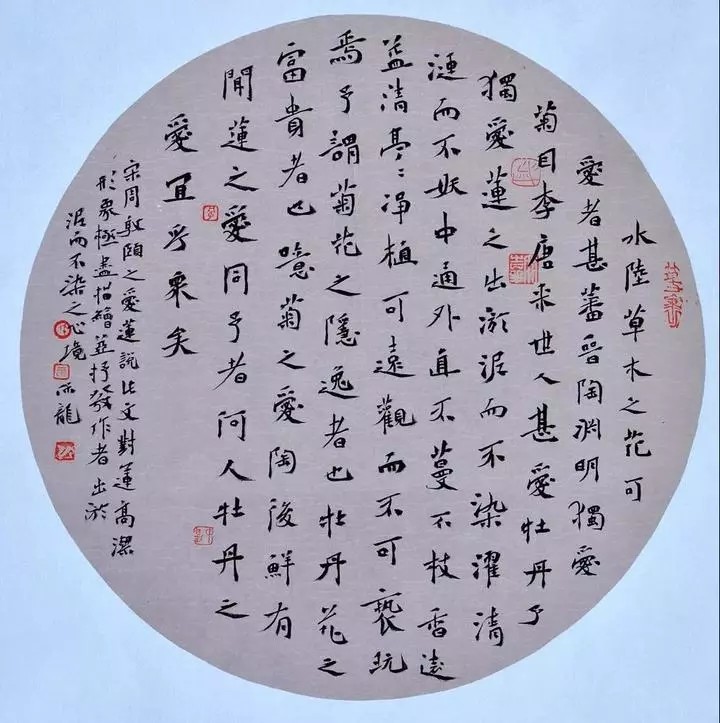 水陸草木之花可
愛者甚蕃晉陶渊明獨愛
菊自李唐来世人甚愛牡丹予
獨愛蓮之出淤泥而不染濯清
漣而不妖中通外直不蔓不枝香遠
益清亭〻淨植可遠觀而不可褻玩
焉予謂菊花之隱逸者也牡丹花之
富貴者也噫菊之愛陶後鮮有
聞蓮之愛同予者何人牡丹之
愛宜乎衆矣
宋周敦頤之愛蓮說此文對蓮高潔
形象極盡描繪並抒發作者出淤
泥而不染之心境 龍